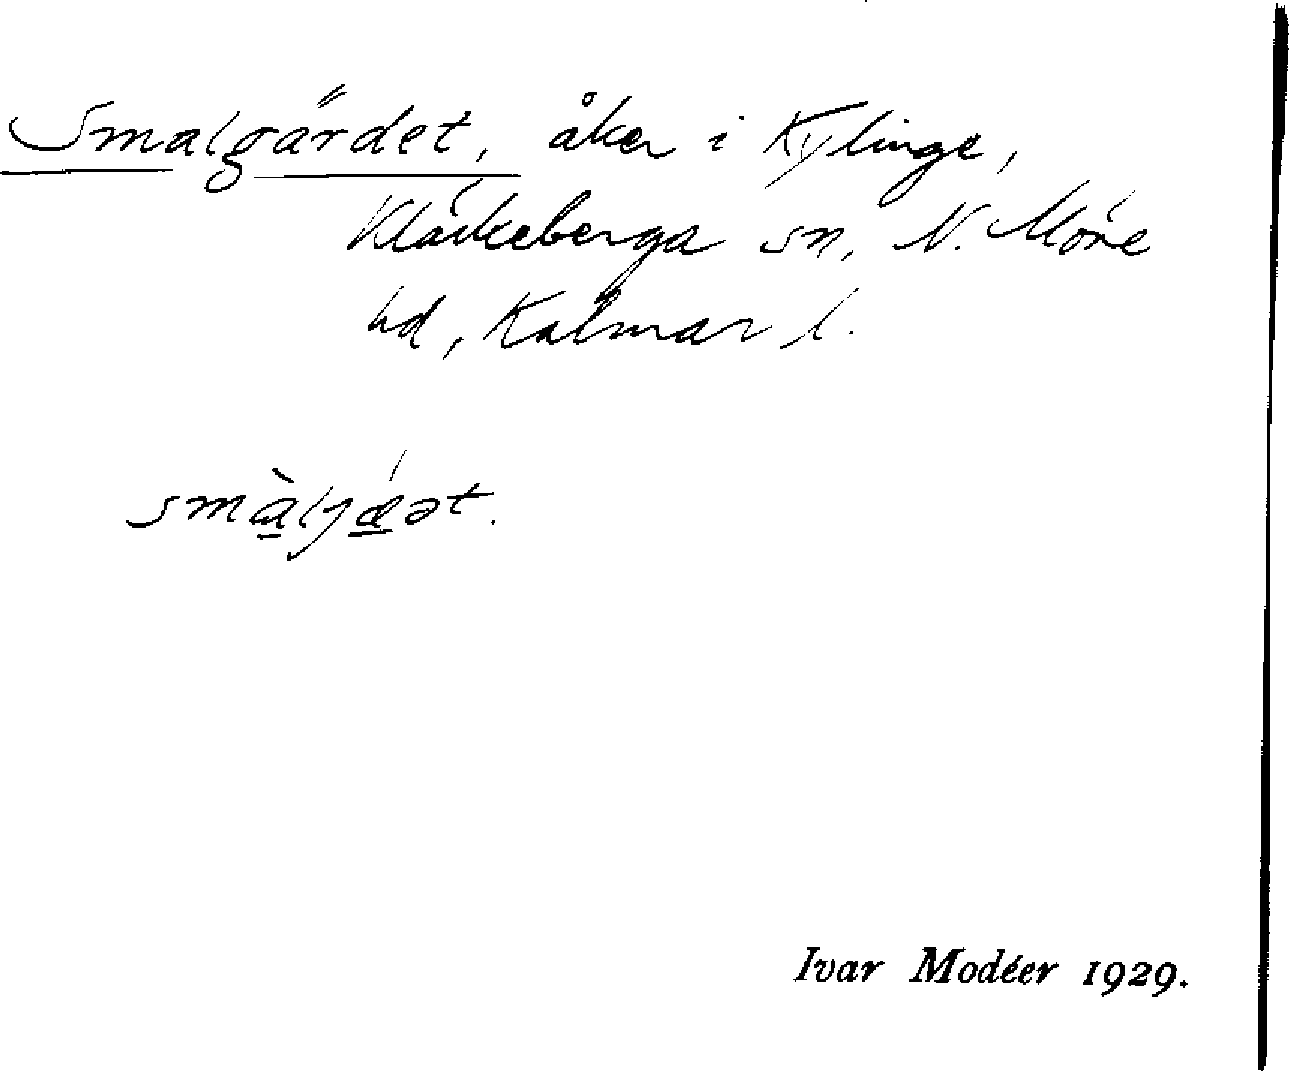 Smalgärdet, åker i Kylinge,
Kläckeberga sn, N. Möre
hd, Kalmar l.
smàljǽət.
Ivar Modéer 1929.